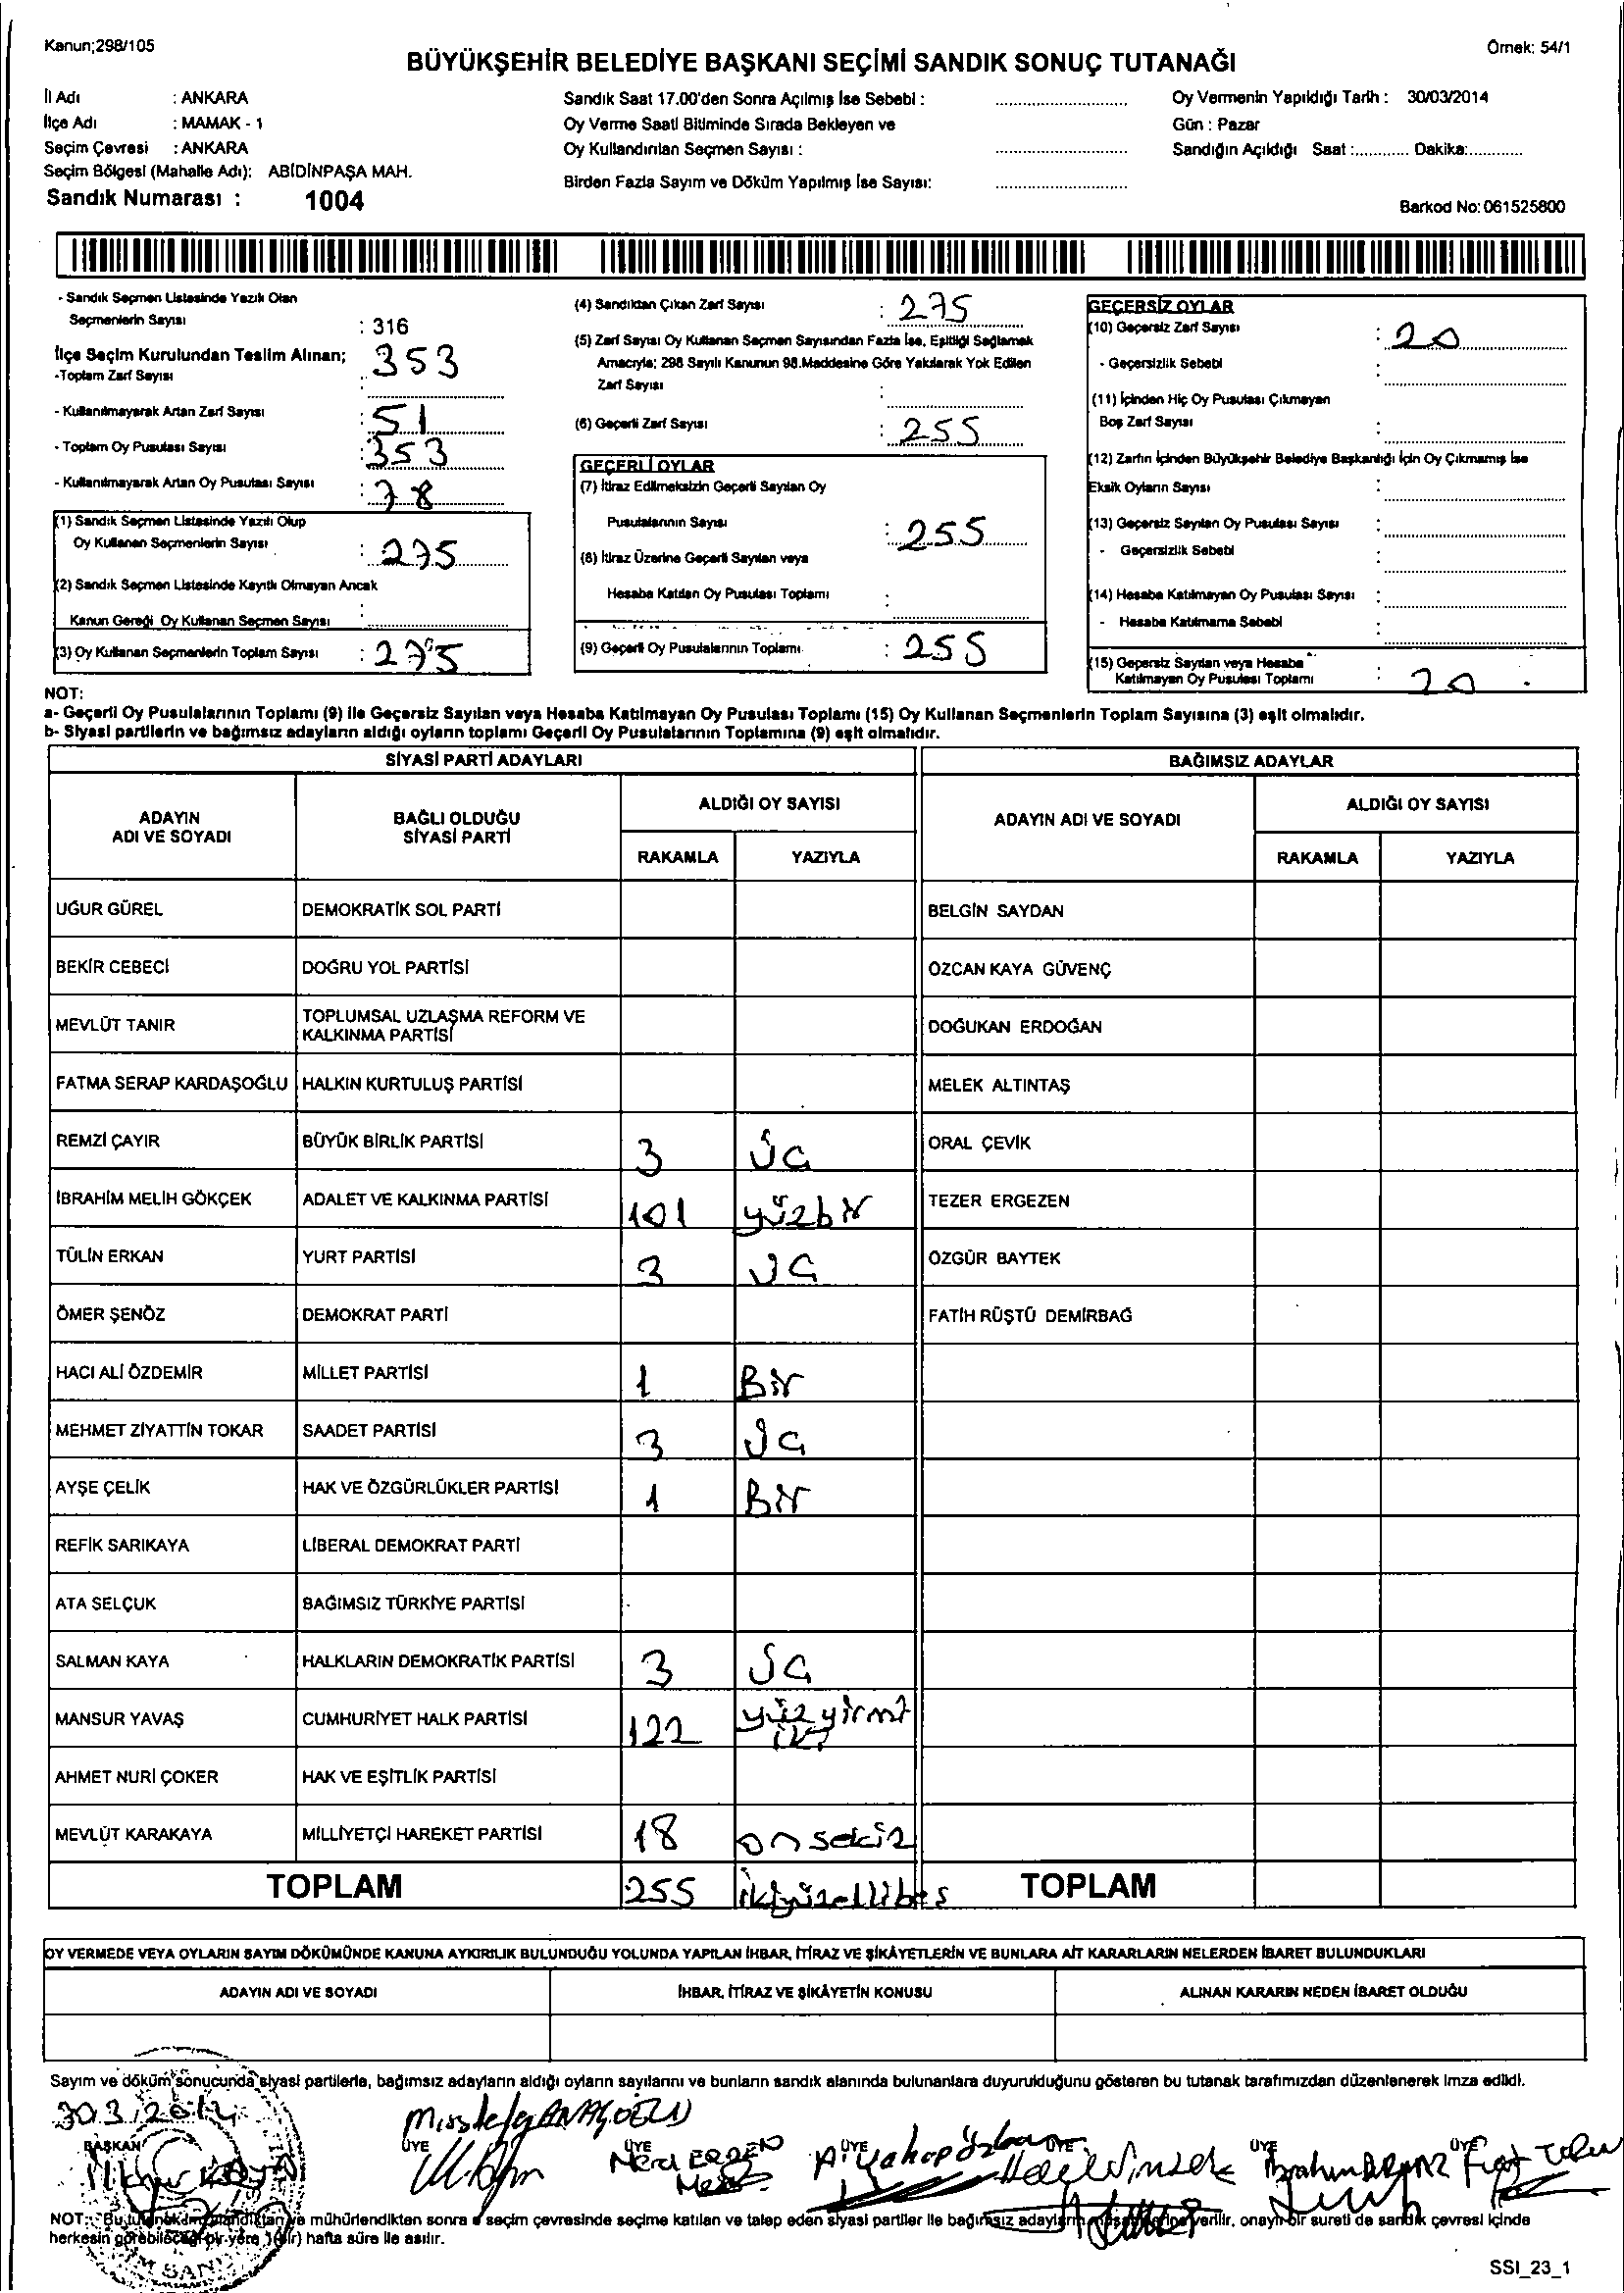 Kanun;298/105
Örnek: 54/1
BÜYÜKŞEHİR BELEDİYE BAŞKANI SEÇİMİ SANDIK SONUÇ TUTANAĞI
İl Adı : ANKARA
İlçe Adı : MAMAK - 1
Seçim Çevresi : ANKARA
Seçim Bölgesi (Mahalle Adı): ABİDİNPAŞA MAH.
Sandık Numarası : 1004
Sandık Saat 17.00'den Sonra Açılmış İse Sebebi :
Oy Verme Saati Bitiminde Sırada Bekleyen ve
Oy Kullandırılan Seçmen Sayısı :
Birden Fazla Sayım ve Döküm Yapılmış İse Sayısı:
Oy Vermenin Yapıldığı Tarih : 30/03/2014
Gün : Pazar
Sandığın Açıldığı Saat :............ Dakika:............
Barkod No: 061525800
- Sandık Seçmen Listesinde Yazılı Olan
Seçmenlerin Sayısı : 316
İlçe Seçim Kurulundan Teslim Alınan;
-Toplam Zarf Sayısı : 353
- Kullanılmayarak Artan Zarf Sayısı : 51
- Toplam Oy Pusulası Sayısı : 353
- Kullanılmayarak Artan Oy Pusulası Sayısı : 78
(1) Sandık Seçmen Listesinde Yazılı Olup
Oy Kullanan Seçmenlerin Sayısı : 275
(2) Sandık Seçmen Listesinde Kayıtlı Olmayan Ancak
Kanun Gereği Oy Kullanan Seçmen Sayısı :
(3) Oy Kullanan Seçmenlerin Toplam Sayısı : 275
(4) Sandıktan Çıkan Zarf Sayısı : 275
(5) Zarf Sayısı Oy Kullanan Seçmen Sayısından Fazla İse, Eşitliği Sağlamak
Amacıyla; 298 Sayılı Kanunun 98.Maddesine Göre Yakılarak Yok Edilen
Zarf Sayısı :
(6) Geçerli Zarf Sayısı : 255
GEÇERLİ OYLAR
(7) İtiraz Edilmeksizin Geçerli Sayılan Oy
Pusulalarının Sayısı : 255
(8) İtiraz Üzerine Geçerli Sayılan veya
Hesaba Katılan Oy Pusulası Toplamı :
(9) Geçerli Oy Pusulalarının Toplamı : 255
GEÇERSİZ OYLAR
(10) Geçersiz Zarf Sayısı : 20
- Geçersizlik Sebebi :
(11) İçinden Hiç Oy Pusulası Çıkmayan
Boş Zarf Sayısı :
(12) Zarfın İçinden Büyükşehir Belediye Başkanlığı İçin Oy Çıkmamış İse
Eksik Oyların Sayısı :
(13) Geçersiz Sayılan Oy Pusulası Sayısı :
- Geçersizlik Sebebi :
(14) Hesaba Katılmayan Oy Pusulası Sayısı :
- Hesaba Katılmama Sebebi :
(15) Geçersiz Sayılan veya Hesaba
Katılmayan Oy Pusulası Toplamı : 20
NOT:
a- Geçerli Oy Pusulalarının Toplamı (9) ile Geçersiz Sayılan veya Hesaba Katılmayan Oy Pusulası Toplamı (15) Oy Kullanan Seçmenlerin Toplam Sayısına (3) eşit olmalıdır.
b- Siyasi partilerin ve bağımsız adayların aldığı oyların toplamı Geçerli Oy Pusulalarının Toplamına (9) eşit olmalıdır.
SİYASİ PARTİ ADAYLARI BAĞIMSIZ ADAYLAR
ADAYIN
ADI VE SOYADI
BAĞLI OLDUĞU
SİYASİ PARTİ
ALDIĞI OY SAYISI
RAKAMLA YAZIYLA
ADAYIN ADI VE SOYADI
ALDIĞI OY SAYISI
RAKAMLA YAZIYLA
UĞUR GÜREL DEMOKRATİK SOL PARTİ BELGİN SAYDAN
BEKİR CEBECİ DOĞRU YOL PARTİSİ ÖZCAN KAYA GÜVENÇ
MEVLÜT TANIR TOPLUMSAL UZLAŞMA REFORM VE
KALKINMA PARTİSİ DOĞUKAN ERDOĞAN
FATMA SERAP KARDAŞOĞLU HALKIN KURTULUŞ PARTİSİ MELEK ALTINTAŞ
REMZİ ÇAYIR BÜYÜK BİRLİK PARTİSİ 3 üç ORAL ÇEVİK
İBRAHİM MELİH GÖKÇEK ADALET VE KALKINMA PARTİSİ 101 yüzbir TEZER ERGEZEN
TÜLİN ERKAN YURT PARTİSİ 3 üç ÖZGÜR BAYTEK
ÖMER ŞENÖZ DEMOKRAT PARTİ FATİH RÜŞTÜ DEMİRBAĞ
HACI ALİ ÖZDEMİR MİLLET PARTİSİ 1 Bir
MEHMET ZİYATTİN TOKAR SAADET PARTİSİ 3 üç
AYŞE ÇELİK HAK VE ÖZGÜRLÜKLER PARTİSİ 1 Bir
REFİK SARIKAYA LİBERAL DEMOKRAT PARTİ
ATA SELÇUK BAĞIMSIZ TÜRKİYE PARTİSİ
SALMAN KAYA HALKLARIN DEMOKRATİK PARTİSİ 3 üç
MANSUR YAVAŞ CUMHURİYET HALK PARTİSİ 122 yüzyirmi
iki
AHMET NURİ ÇOKER HAK VE EŞİTLİK PARTİSİ
MEVLÜT KARAKAYA MİLLİYETÇİ HAREKET PARTİSİ 18 onsekiz
TOPLAM 255 ikiyüzellibeş TOPLAM
OY VERMEDE VEYA OYLARIN SAYIM DÖKÜMÜNDE KANUNA AYKIRILIK BULUNDUĞU YOLUNDA YAPILAN İHBAR, İTİRAZ VE ŞİKÂYETLERİN VE BUNLARA AİT KARARLARIN NELERDEN İBARET BULUNDUKLARI
ADAYIN ADI VE SOYADI İHBAR, İTİRAZ VE ŞİKÂYETİN KONUSU ALINAN KARARIN NEDEN İBARET OLDUĞU
Sayım ve döküm sonucunda siyasi partilerle, bağımsız adayların aldığı oyların sayılarını ve bunların sandık alanında bulunanlara duyurulduğunu gösteren bu tutanak tarafımızdan düzenlenerek imza edildi.
30.3.2014
BAŞKAN ÜYE ÜYE ÜYE ÜYE ÜYE ÜYE
NOT: Bu tutanak mühürlendikten sonra seçim çevresinde seçime katılan ve talep eden siyasi partiler ile bağımsız adayların verilir, onaylı bir sureti de sandık çevresi içinde
herkesin görebileceği bir yere 1(bir) hafta süre ile asılır.
SSI_23_1